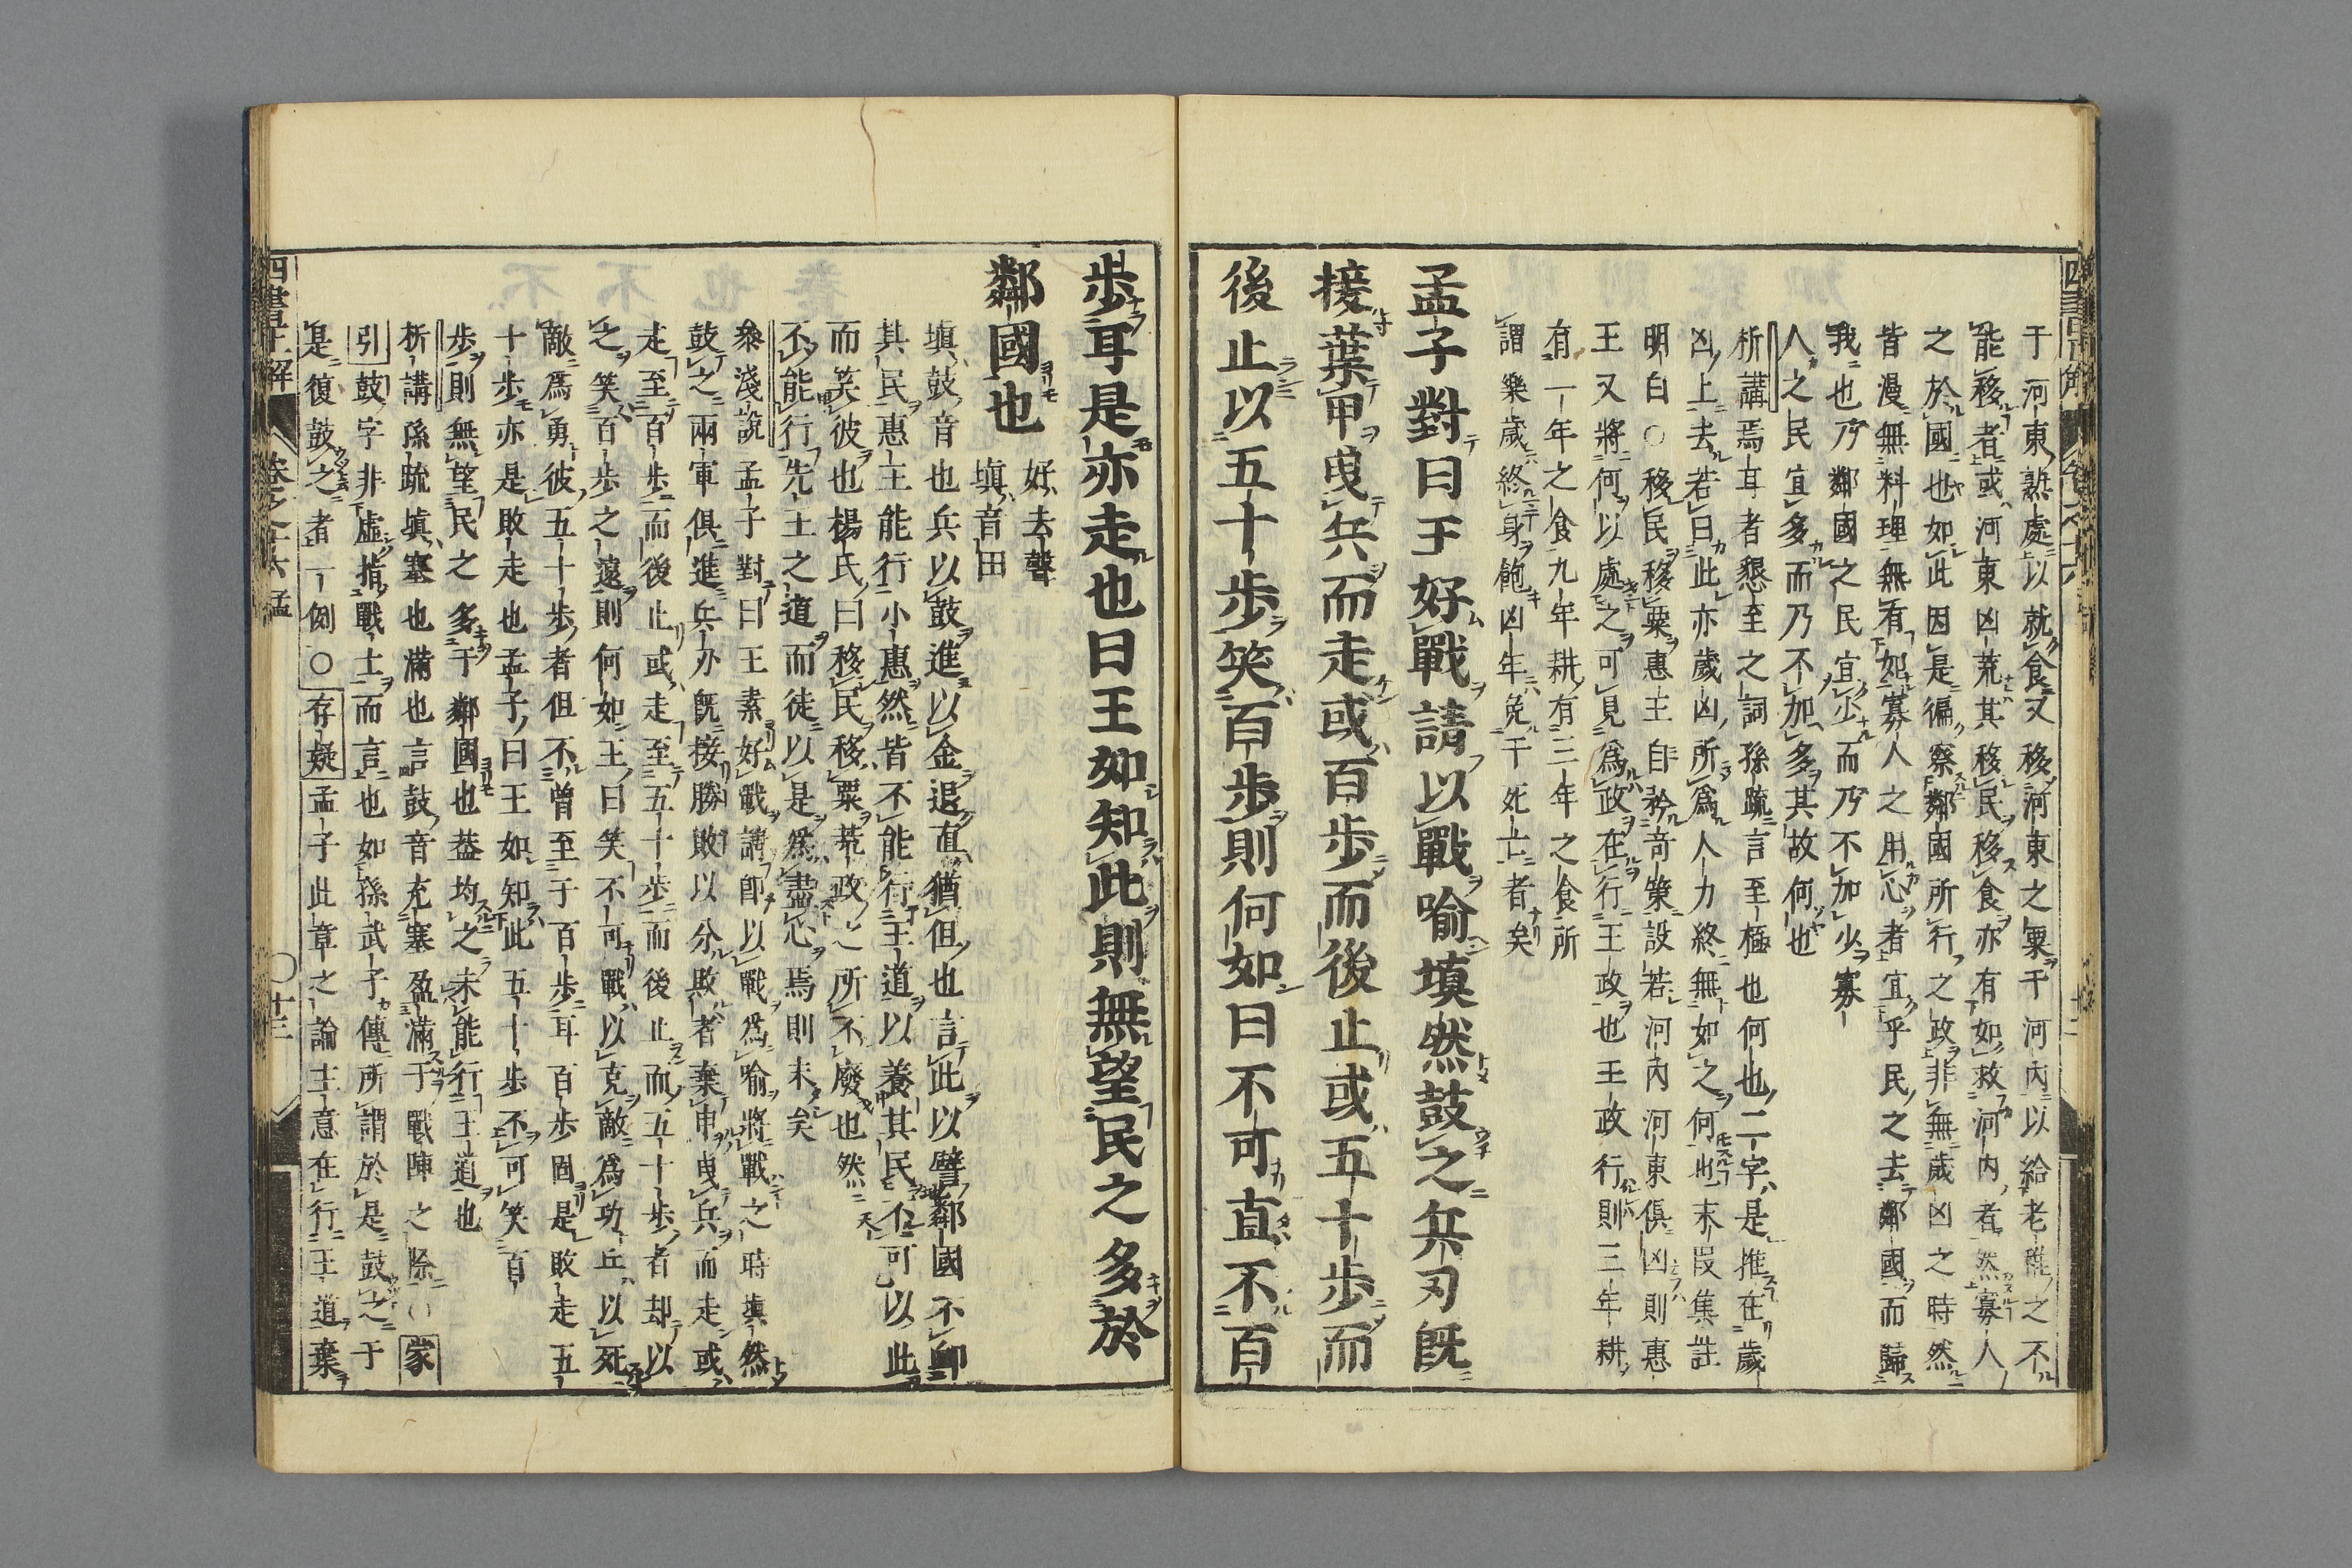 于河東熟處以就食又移河東之粟于河內以給老稚之不
能移者或河東凶荒其移民移食亦有如救河內者然寡人
之於國也如此因是徧察鄰國所行之政非無歲凶之時然
皆漫無料理無有如寡人之用心者宜乎民之去鄰國而歸
我也乃鄰國之民宜少而乃不加少寡
人之民宜多而乃不加多其故何也
析講焉耳者懇至之詞孫疏言至極也何也二字是推在歲
凶上去若曰此亦歲凶所爲人力終無如之何也末段集註
明白○移民移粟惠王自矜奇策設若河內河東俱凶則惠
王又將何以處之可見爲政在行王政也王政行則三年耕
有一年之食九年耕有三年之食所
謂樂歲終身飽凶年免于死亡者矣
孟子對曰王好戰請以戰喻填然鼓之兵刃既
接棄甲曳兵而走或百步而後止或五十步而
後止以五十步笑百步則何如曰不可直不百
步耳是亦走也曰王如知此則無望民之多於
鄰國也
好去聲
填音田
填鼓音也兵以鼓進以金退直猶但也言此以譬鄰國不卹
其民惠王能行小惠然皆不能行王道以養其民不可以此
而笑彼也楊氏曰移民移粟荒政之所不廢也然
不能行先王之道而徒以是爲盡心焉則未矣
衆淺說孟子對曰王素好戰請卽以戰爲喻將戰之時填然
鼓之兩軍俱進兵刃既接勝敗以分敗者棄甲曳兵而走或
走至百步而後止或走至五十步而後止而五十步者却以
之笑百步之遠則何如王曰笑不可戰以克敵爲功兵以死
敵爲勇彼五十步者但不曾至于百步耳百步固是敗走五
十步亦是敗走也孟子曰王如知此五十步不可笑百
步則無望民之多于鄰國也葢均之未能行王道也
析講孫疏填塞也滿也言鼓音充塞盈滿于戰陣之際○蒙
引鼓字非虛指戰士而言也如孫武子傳所謂於是鼓之于
是復鼓之者一例○存疑孟子此章之論主意在行王道棄
四書正解
卷之十六孟
○十三